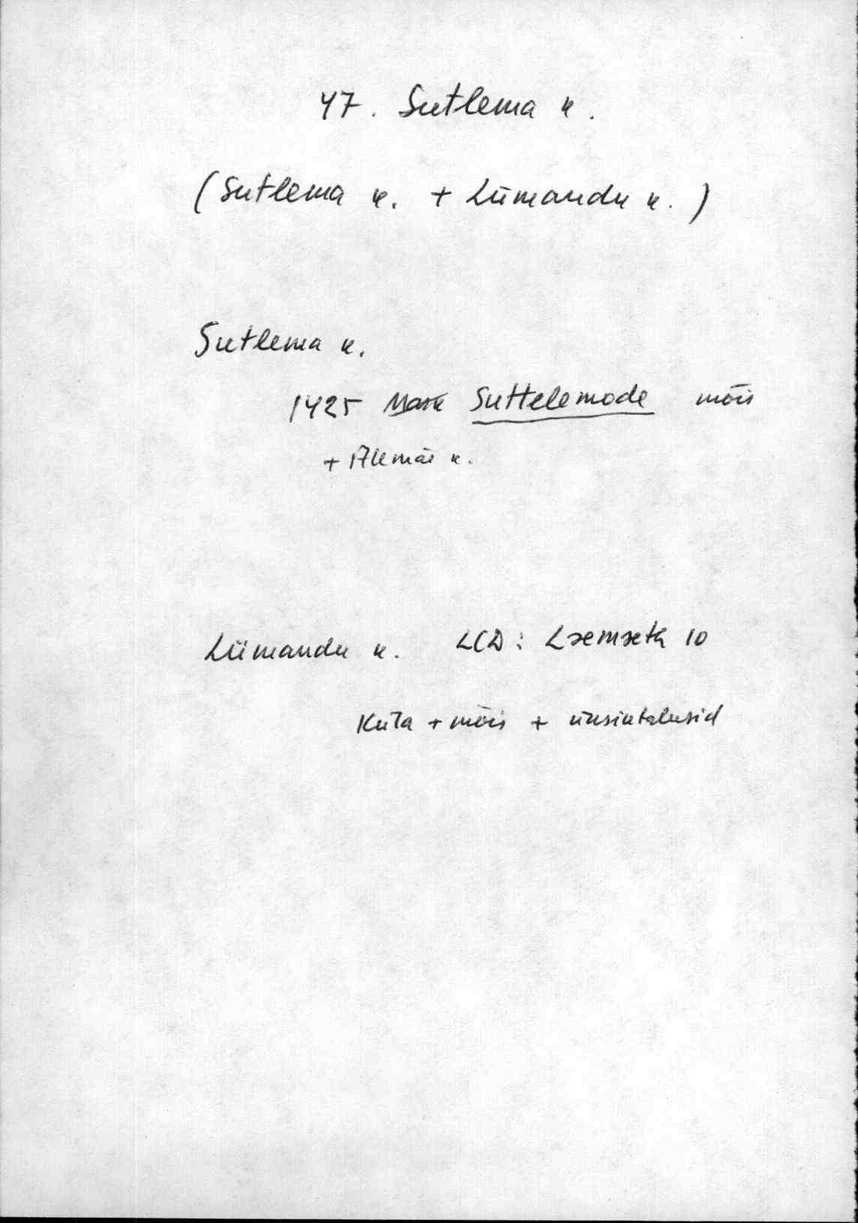 47. Sutlema k.
(Sutlema k. + Lümandu k.)
Sutlema k.
1425 Suttelemode mõis
+ Alemäe k.
Lümandu k. LCD: Læmæth 10
Kuta + mõis + üksiktalusid